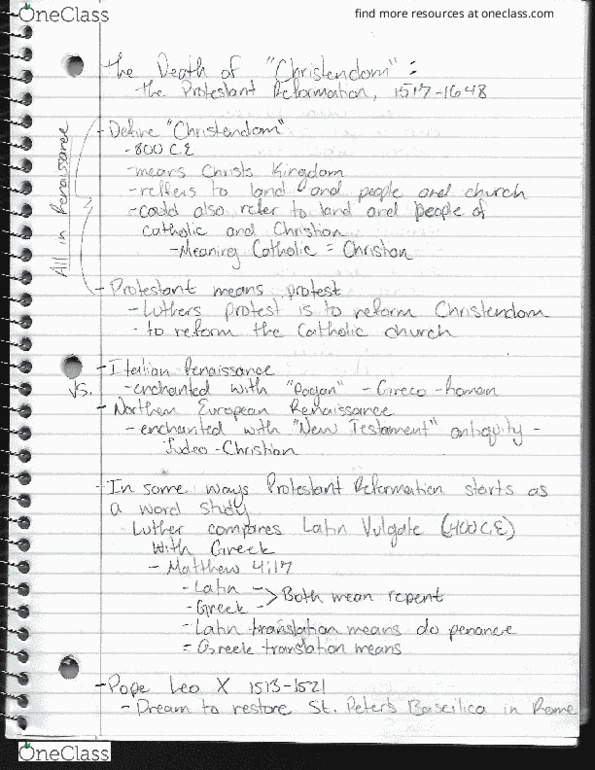 OneClass
find more resources at oneclass.com
the Death of "Christendom" :
- the Protestant Reformation, 1517-1648
- Define "Christendom"
- 800 C.E
- means Christs Kingdom
- reffers to land and people and church
- could also refer to land and people of
catholic and Christian
- Meaning Catholic = Christian
All in Renaissance
- Protestant means protest
- Luthers protest is to reform Christendom
- to reform the Catholic church
- Italian Renaissance
vs. - enchanted with "Pagan" - Greco-Roman
- Northern European Renaissance
- enchanted with "New Testament" antiquity -
Judeo-Christian
- In some ways Protestant Reformation starts as
a word study
- Luther compares Latin Vulgate (400 C.E)
with Greek
- Matthew 4:17
- Latin
- Greek
> Both mean repent
- Latin translation means do penance
= Greek translation means
- Pope Leo X 1513-1521
- Dream to restore St. Peter's Bascilica in Rome
OneClass